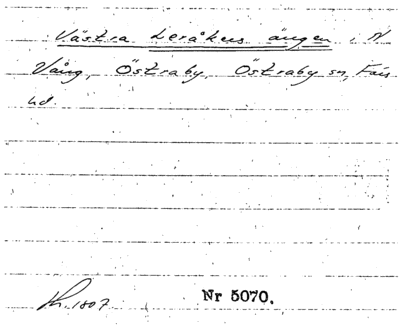 Västra Leråkers ängen i N
Vång, Östraby, Östraby sn, Färs
hd
1807 Nr 5070.